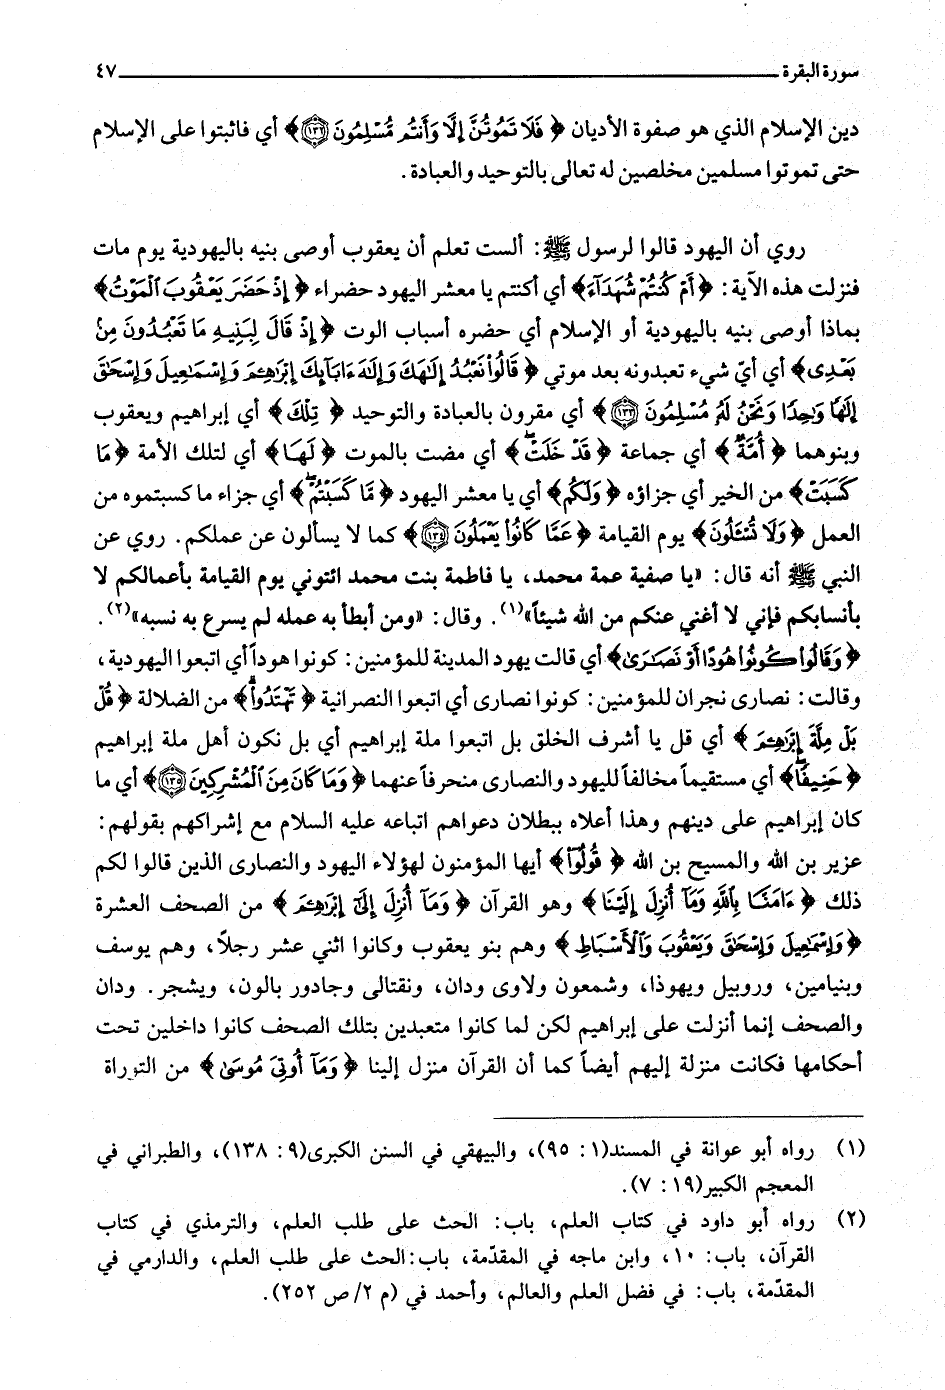 سورة البقرة ٤٧
دين الإسلام الذي هو صفوة الأديان ﴿ فَلَا تَمُوتُنَّ إِلَّا وَأَنتُم مُّسْلِمُونَ ﴿١٣٢﴾ ﴾ أي فاثبتوا على الإسلام
حتى تموتوا مسلمين مخلصين له تعالى بالتوحيد والعبادة .
روي أن اليهود قالوا لرسول ﷺ : ألست تعلم أن يعقوب أوصى بنيه باليهودية يوم مات
فنزلت هذه الآية : ﴿ أَمْ كُنتُمْ شُهَدَآءَ ﴾ أي أكنتم يا معشر اليهود حضراء ﴿ إِذْ حَضَرَ يَعْقُوبَ ٱلْمَوْتُ ﴾
بماذا أوصى بنيه باليهودية أو الإسلام أي حضره أسباب الوت ﴿ إِذْ قَالَ لِبَنِيهِ مَا تَعْبُدُونَ مِنۢ
بَعْدِى ﴾ أي أيّ شيء تعبدونه بعد موتي ﴿ قَالُوا۟ نَعْبُدُ إِلَٰهَكَ وَإِلَٰهَ ءَابَآئِكَ إِبْرَٰهِـۧمَ وَإِسْمَٰعِيلَ وَإِسْحَٰقَ
إِلَٰهًا وَٰحِدًا وَنَحْنُ لَهُۥ مُسْلِمُونَ ﴿١٣٣﴾ ﴾ أي مقرون بالعبادة والتوحيد ﴿ تِلْكَ ﴾ أي إبراهيم ويعقوب
وبنوهما ﴿ أُمَّةٌ ﴾ أي جماعة ﴿ قَدْ خَلَتْ ﴾ أي مضت بالموت ﴿ لَهَا ﴾ أي لتلك الأمة ﴿ مَا
كَسَبَتْ ﴾ من الخير أي جزاؤه ﴿ وَلَكُم ﴾ أي يا معشر اليهود ﴿ مَّا كَسَبْتُمْ ﴾ أي جزاء ما كسبتموه من
العمل ﴿ وَلَا تُسْـَٔلُونَ ﴾ يوم القيامة ﴿ عَمَّا كَانُوا۟ يَعْمَلُونَ ﴿١٣٤﴾ ﴾ كما لا يسألون عن عملكم . روي عن
النبي ﷺ أنه قال : «يا صفية عمة محمد، يا فاطمة بنت محمد ائتوني يوم القيامة بأعمالكم لا
بأنسابكم فإني لا أغني عنكم من الله شيئاً»(١). وقال : «ومن أبطأ به عمله لم يسرع به نسبه»(٢).
﴿ وَقَالُوا۟ كُونُوا۟ هُودًا أَوْ نَصَٰرَىٰ ﴾ أي قالت يهود المدينة للمؤمنين : كونوا هوداً أي اتبعوا اليهودية،
وقالت : نصارى نجران للمؤمنين : كونوا نصارى أي اتبعوا النصرانية ﴿ تَهْتَدُوا۟ ﴾ من الضلالة ﴿ قُلْ
بَلْ مِلَّةَ إِبْرَٰهِـۧمَ ﴾ أي قل يا أشرف الخلق بل اتبعوا ملة إبراهيم أي بل نكون أهل ملة إبراهيم
﴿ حَنِيفًا ﴾ أي مستقيماً مخالفاً لليهود والنصارى منحرفاً عنهما ﴿ وَمَا كَانَ مِنَ ٱلْمُشْرِكِينَ ﴿١٣٥﴾ ﴾ أي ما
كان إبراهيم على دينهم وهذا أعلاه ببطلان دعواهم اتباعه عليه السلام مع إشراكهم بقولهم :
عزير بن الله والمسيح بن الله ﴿ قُولُوٓا۟ ﴾ أيها المؤمنون لهؤلاء اليهود والنصارى الذين قالوا لكم
ذلك ﴿ ءَامَنَّا بِٱللَّهِ وَمَآ أُنزِلَ إِلَيْنَا ﴾ وهو القرآن ﴿ وَمَآ أُنزِلَ إِلَىٰٓ إِبْرَٰهِـۧمَ ﴾ من الصحف العشرة
﴿ وَإِسْمَٰعِيلَ وَإِسْحَٰقَ وَيَعْقُوبَ وَٱلْأَسْبَاطِ ﴾ وهم بنو يعقوب وكانوا اثني عشر رجلاً، وهم يوسف
وبنيامين، وروبيل ويهوذا، وشمعون ولاوى ودان، ونقتالى وجادور بالون، ويشجر . ودان
والصحف إنما أنزلت على إبراهيم لكن لما كانوا متعبدين بتلك الصحف كانوا داخلين تحت
أحكامها فكانت منزلة إليهم أيضاً كما أن القرآن منزل إلينا ﴿ وَمَآ أُوتِىَ مُوسَىٰ ﴾ من التوراة
(١) رواه أبو عوانة في المسند(١ : ٩٥)، والبيهقي في السنن الكبرى(٩ : ١٣٨)، والطبراني في
المعجم الكبير(١٩ : ٧).
(٢) رواه أبو داود في كتاب العلم، باب: الحث على طلب العلم، والترمذي في كتاب
القرآن، باب: ١٠، وابن ماجه في المقدّمة، باب:الحث على طلب العلم، والدارمي في
المقدّمة، باب: في فضل العلم والعالم، وأحمد في (م ٢/ ص ٢٥٢).